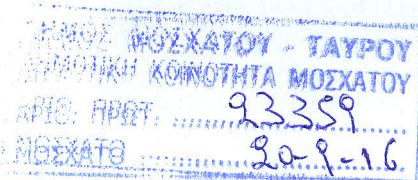 ΔΗΜΟΣ ΜΟΣΧΑΤΟΥ - ΤΑΥΡΟΥ
ΔΗΜΟΤΙΚΗ ΚΟΙΝΟΤΗΤΑ ΜΟΣΧΑΤΟΥ
ΑΡΙΘ. ΠΡΩΤ. 23359
ΜΟΣΧΑΤΟ 20-9-16